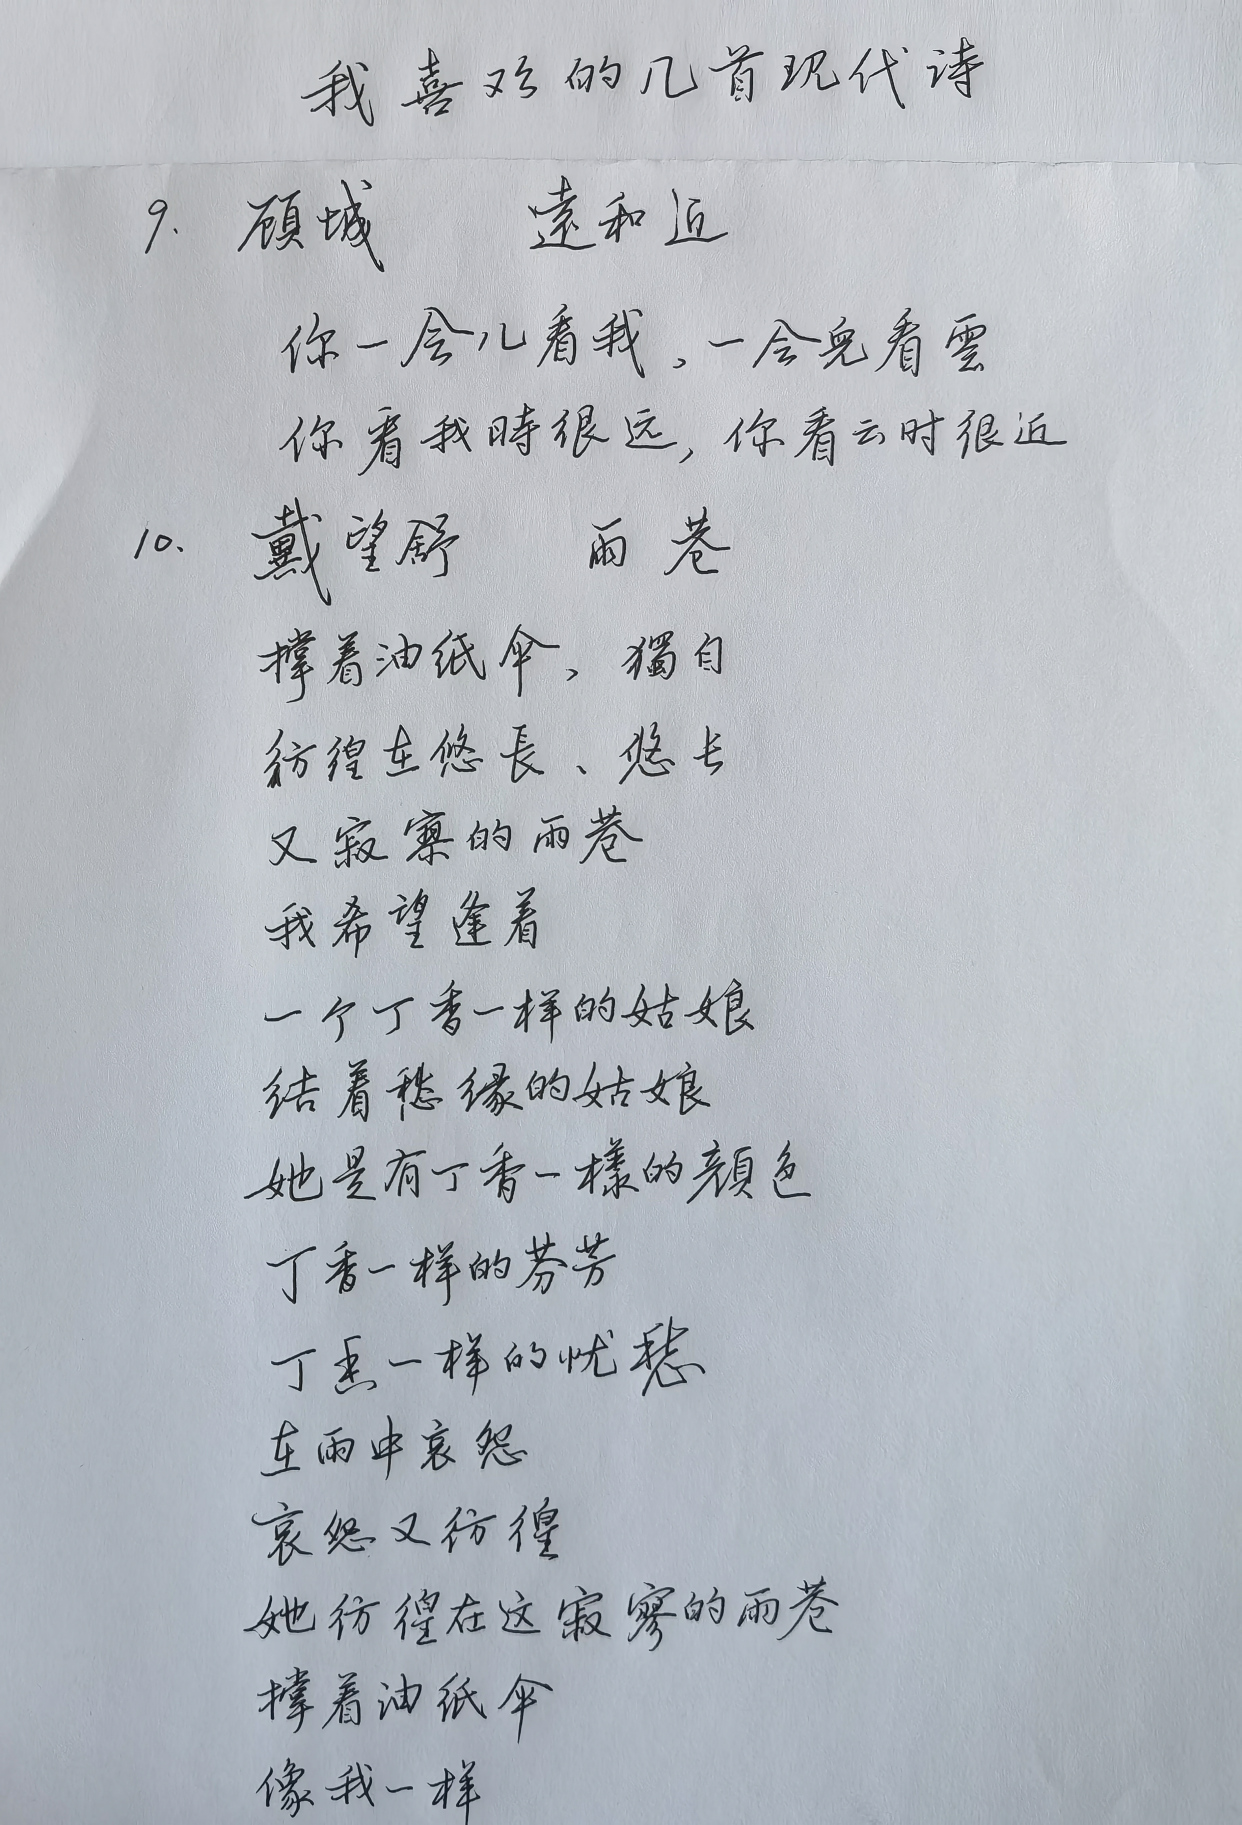 我喜欢的几首现代诗
9. 顾城 遠和近
你一会儿看我、一会兒看雲
你看我時很远,你看云时很近
10. 戴望舒 雨巷
撑着油纸伞、獨自
彷徨在悠長、悠长
又寂寞的雨巷
我希望逢着
一个丁香一样的姑娘
结着愁缘的姑娘
她是有丁香一樣的顔色
丁香一样的芬芳
丁香一样的忧愁
在雨中哀怨
哀怨又彷徨
她彷徨在这寂寥的雨巷
撑着油纸伞
像我一样